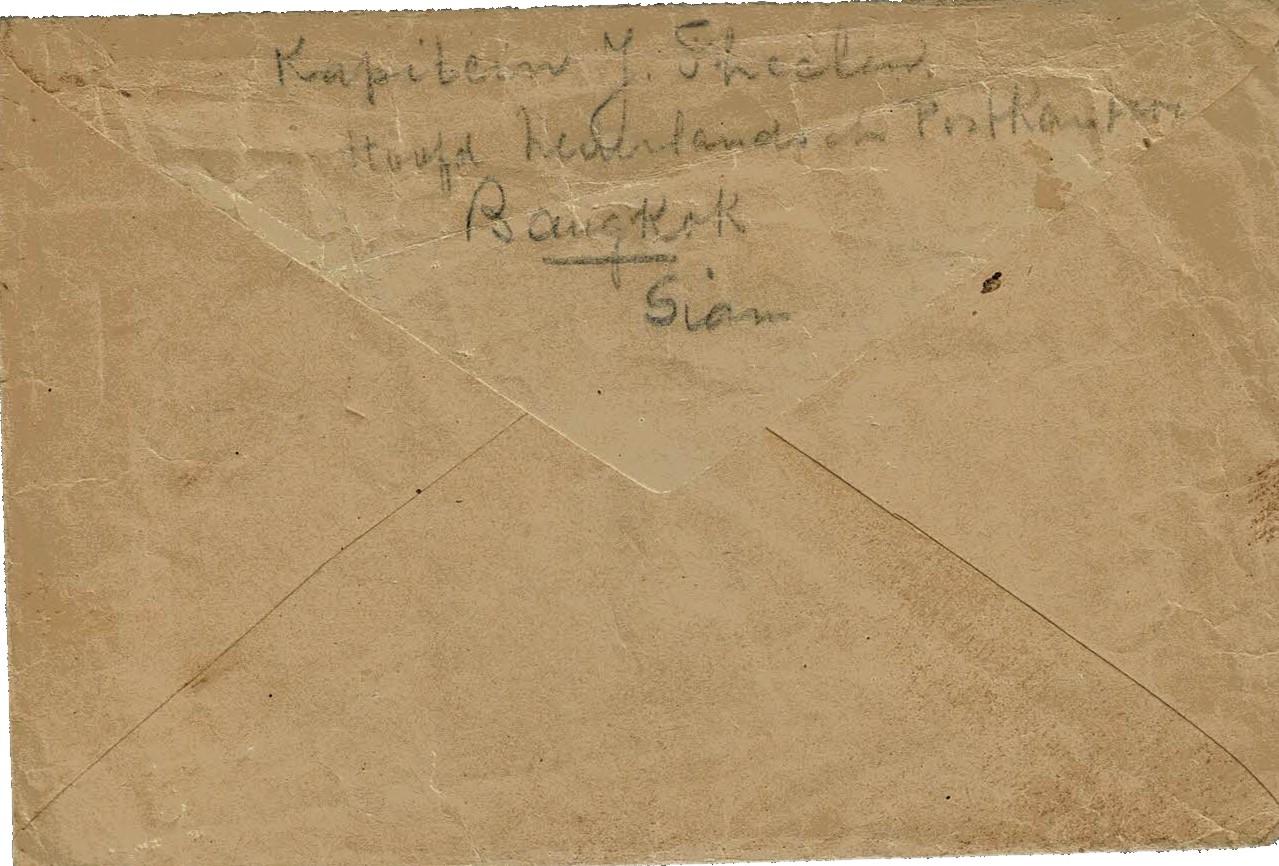 Kapitein J. Theelen
Hoofd Nederlandsch Postkantoor
Bangkok
Siam